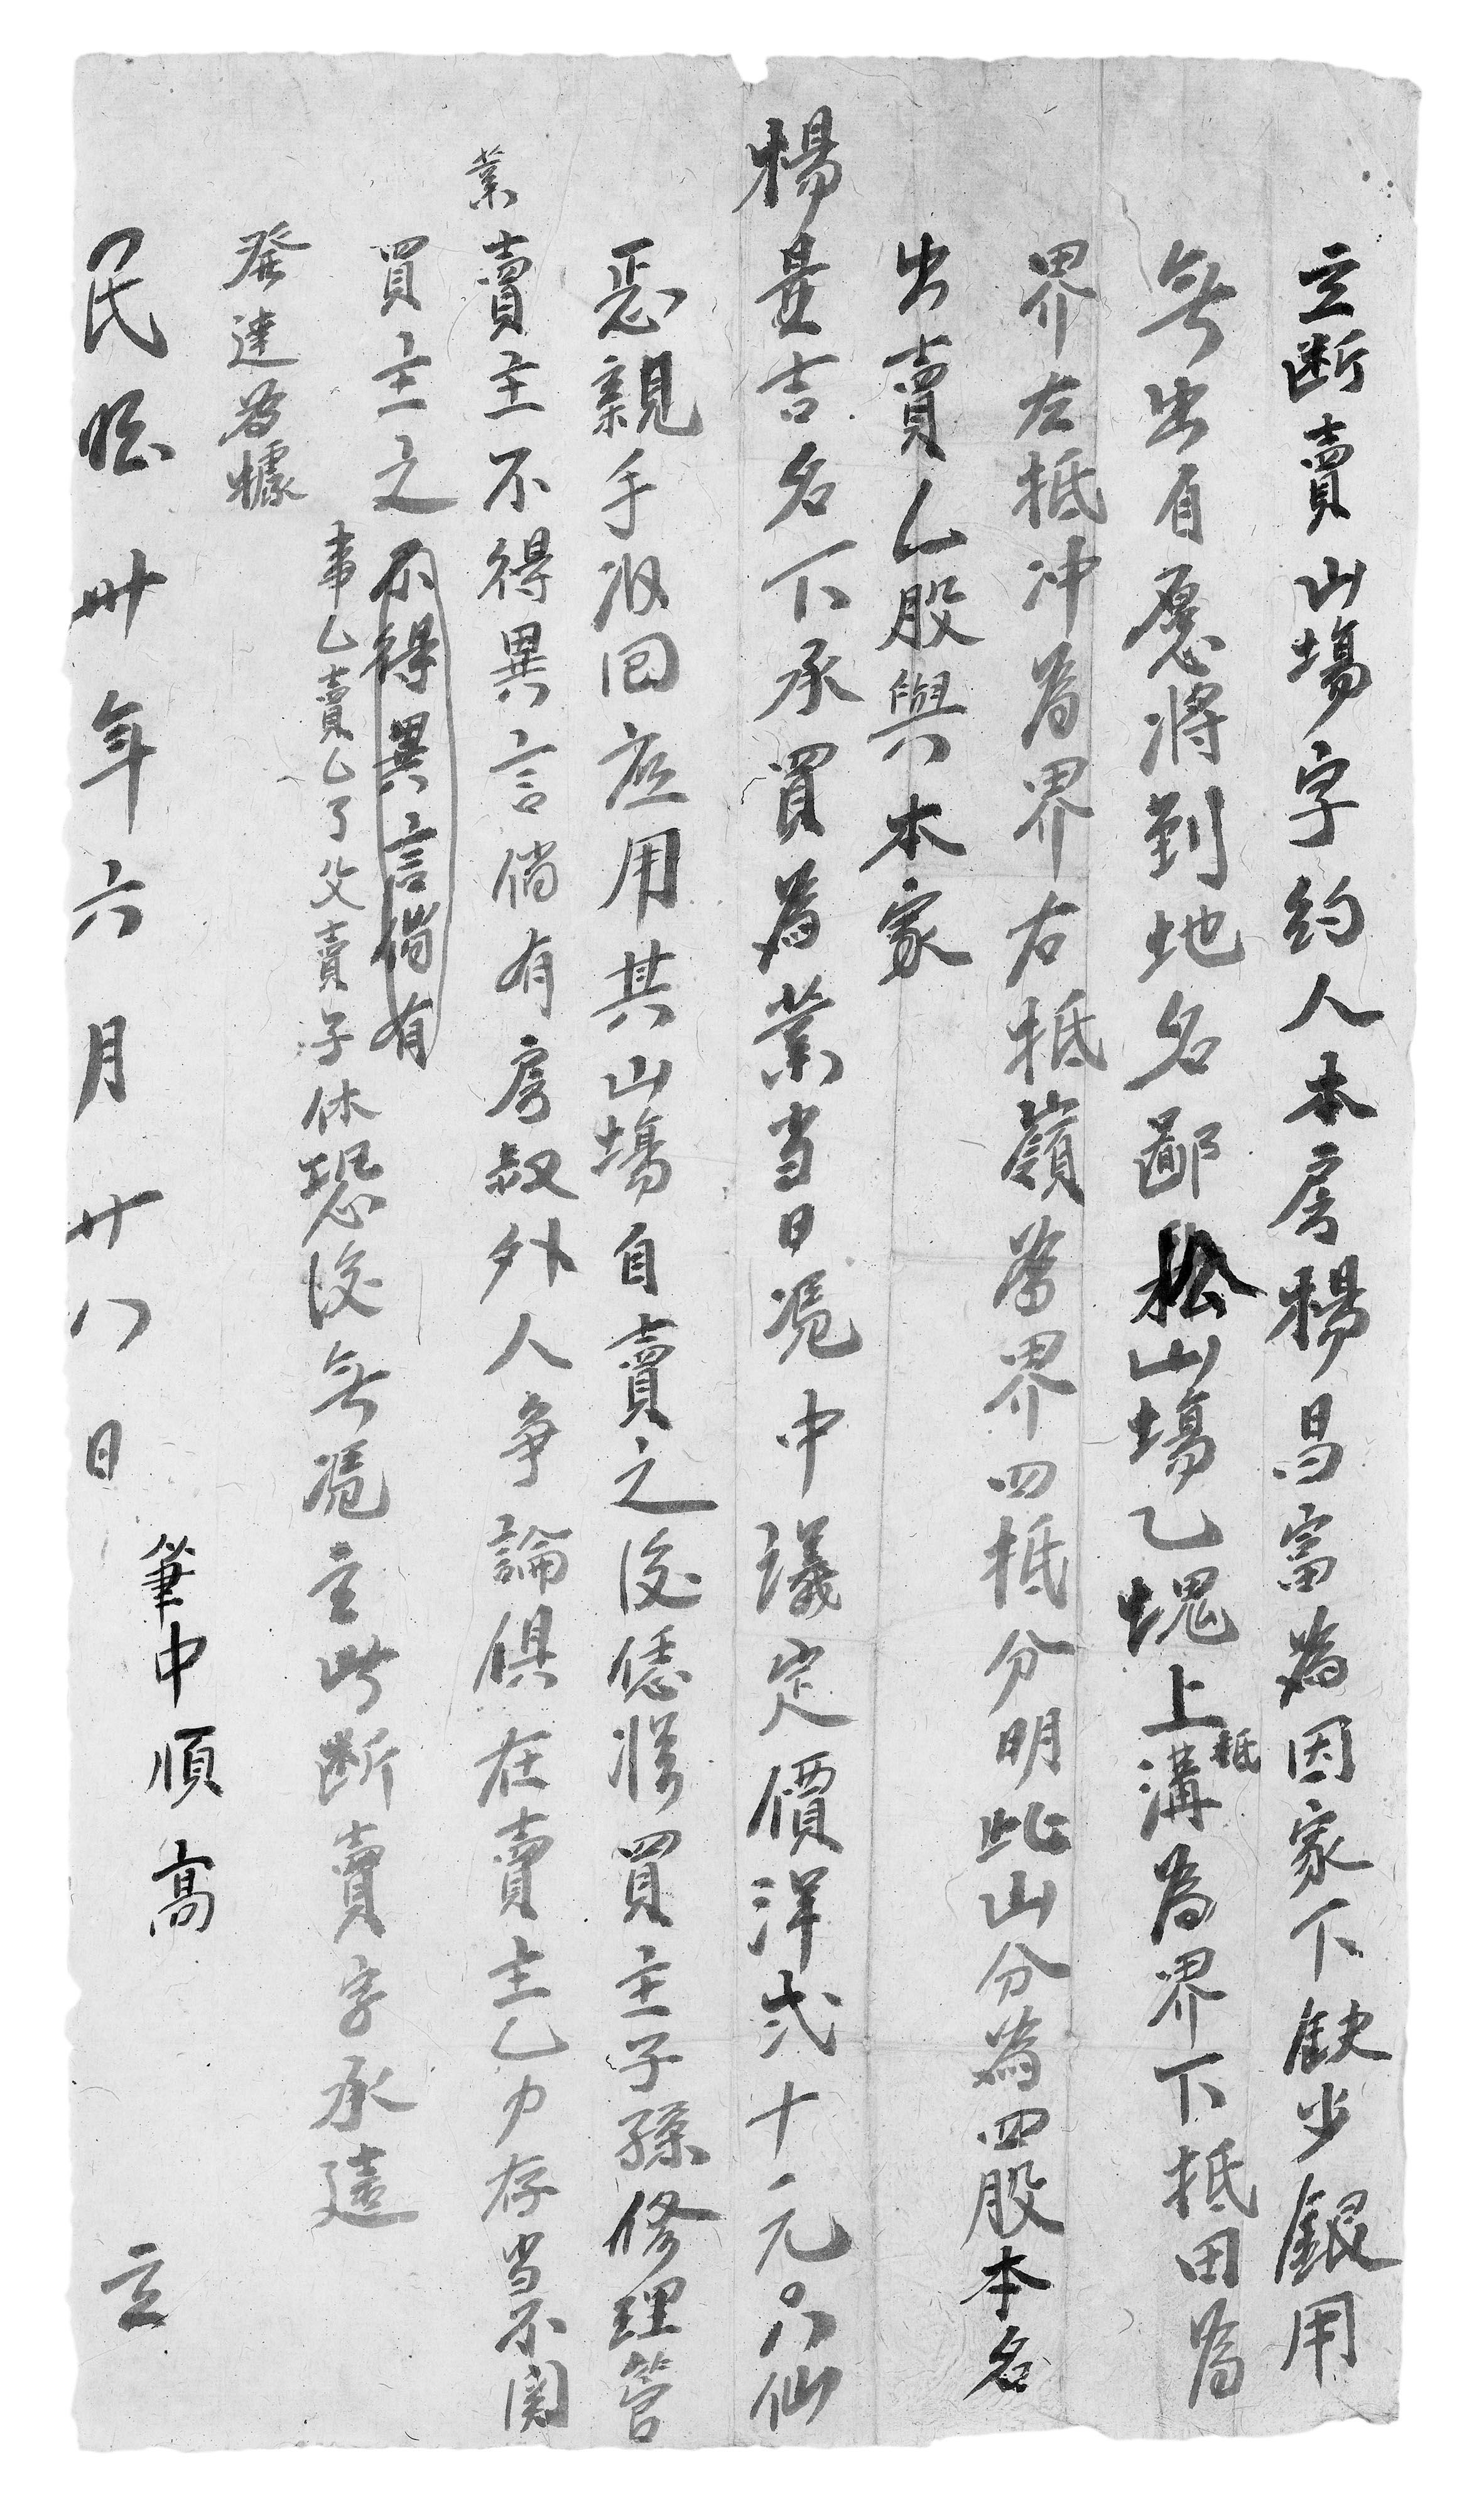 立断賣山塲字約人本房楊昌富為因家下缺少銀用
無出自愿將到地名鄙松山塲乙塊上抵溝為界下抵田為
界左抵冲為界右抵嶺為界四抵分明此山分為四股本名
出賣乚股與本家
楊量吉名下承買為業当日凴中議定價洋弍十元〇八仙
恶親手收回应用其山塲自賣之後恁凴買主子孫修理管
業賣主不得異言倘有房叔外人争論俱在賣主乚力存当不関
買主之不得異言倘有
事乚賣乚了父賣子休恐後無凴立此断賣字承遠
發達為據
筆中順高
民囯卅年六月廿八日立